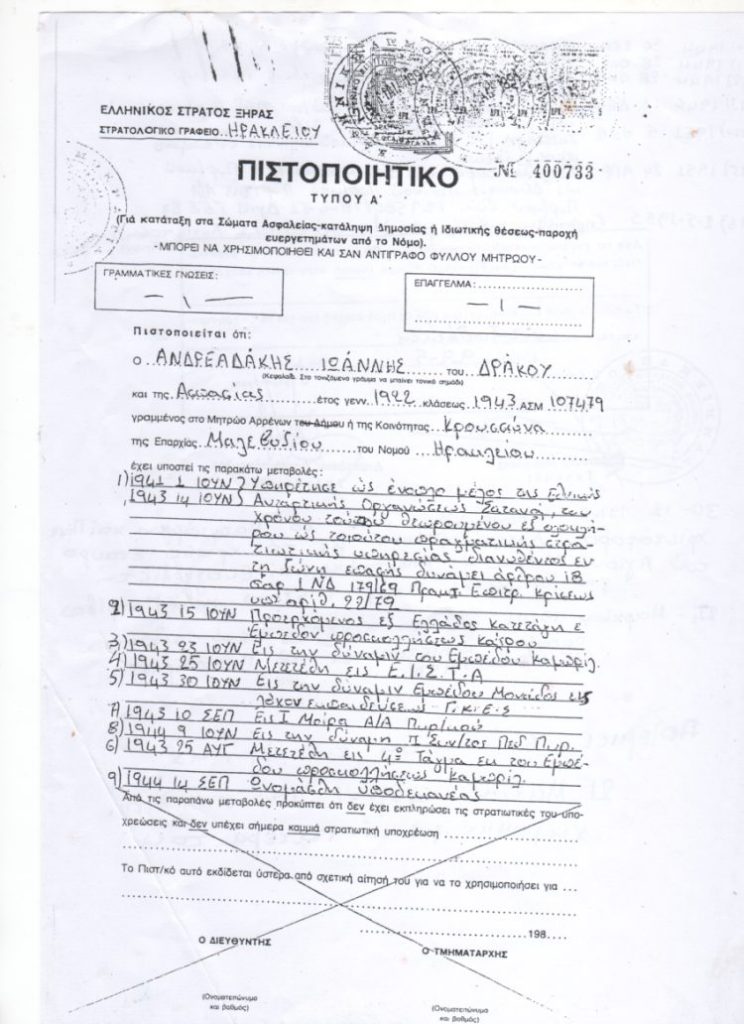 ΕΛΛΗΝΙΚΟΣ ΣΤΡΑΤΟΣ ΞΗΡΑΣ
ΣΤΡΑΤΟΛΟΓΙΚΟ ΓΡΑΦΕΙΟ..ΗΡΑΚΛΕΙΟΥ
ΠΙΣΤΟΠΟΙΗΤΙΚΟ
№ 400733
ΤΥΠΟΥ Α΄
(Για κατάταξη στα Σώματα Ασφαλείας-κατάληψη Δημοσίας ή Ιδιωτικής θέσεως-παροχή
ευεργετημάτων από το Νόμο).
-ΜΠΟΡΕΙ ΝΑ ΧΡΗΣΙΜΟΠΟΙΗΘΕΙ ΚΑΙ ΣΑΝ ΑΝΤΙΓΡΑΦΟ ΦΥΛΛΟΥ ΜΗΤΡΩΟΥ-
ΓΡΑΜΜΑΤΙΚΕΣ ΓΝΩΣΕΙΣ:
ΕΠΑΓΓΕΛΜΑ:
Πιστοποιείται ότι:
Ο ΑΝΔΡΕΑΔΑΚΗΣ ΙΩΑΝΝΗΣ του ΔΡΑΚΟΥ
(Κεφαλαία. Στο τονιζόμενο γράμμα να μπαίνει τονικό σημάδι)
και της Ασπασίας έτος γενν. 1922 κλάσεως 1943 ΑΣΜ 107479
γραμμένος στο Μητρώο Αρρένων του Δήμου ή της Κοινότητας Κρουσσώνα
της Επαρχίας Μαλεβυζίου του Νομού Ηρακλείου
έχει υποστεί τις παρακάτω μεταβολές:
1) 1941 1 ΙΟΥΝ Υπηρέτησε ως ένοπλο μέλος της Εθνικής
1943 14 ΙΟΥΝ Αντάρτικής Οργανώσεως Σατανά, του
χρόνου τούτου θεωρουμένου εξ ολοκλή-
ρου ως τοιούτου πραγματικής στρα-
τιωτικής υπηρεσίας διανυθέντος εν
τη ζώνη επαφής δυνάμει άρθρου 18
παρ 1 ΝΔ 179/69 Κρίσεως
υπ' αριθ. 22/79
2) 1943 15 ΙΟΥΝ Προερχόμενος εξ Ελλάδος κατετάγη ε
Έμπεδον προσκολλήσεως Καΐρου
3) 1943 23 ΙΟΥΝ Εις την δύναμιν του Εμπέδου
4) 1943 25 ΙΟΥΝ Μετετέθη εις Ε.Ι.Σ.Τ.Α
5) 1943 30 ΙΟΥΝ Εις την δύναμιν Εμπέδου Μονάδος εις
λόχον εκπαιδεύσεως Γ.Κ.Ε.Σ
7) 1943 10 ΣΕΠ Εις Ι Μοίρα Α/Α Πυρ/κού
8) 1944 9 ΙΟΥΝ Εις την δύναμη Πυρ.
6) 1943 25 ΑΥΓ Μετετέθη εις 4ο Τάγμα εκ του Εμπέ-
δου προσκολλήσεως
9) 1944 14 ΣΕΠ Ωνομάσθη υποδεκανέας
Από τις παραπάνω μεταβολές προκύπτει ότι δεν έχει εκπληρώσει τις στρατιωτικές του υπο-
χρεώσεις και δεν υπέχει σήμερα καμμιά στρατιωτική υποχρέωση
Το Πιστ/κό αυτό εκδίδεται ύστερα από σχετική αίτησή του για να το χρησιμοποιήσει για ...
198....
Ο ΔΙΕΥΘΥΝΤΗΣ
Ο ΤΜΗΜΑΤΑΡΧΗΣ
(Ονοματεπώνυμο
και βαθμός)
(Ονοματεπώνυμο
και βαθμός)